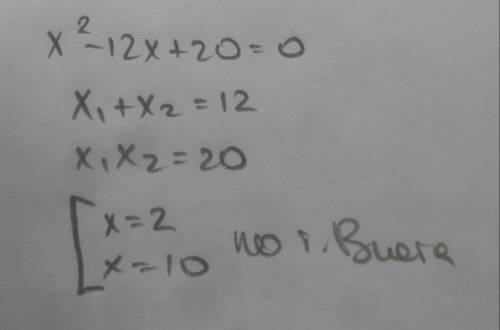 x² - 12x + 20 = 0
x₁ + x₂ = 12
x₁x₂ = 20
[ x = 2
x = 10 по т. Виета